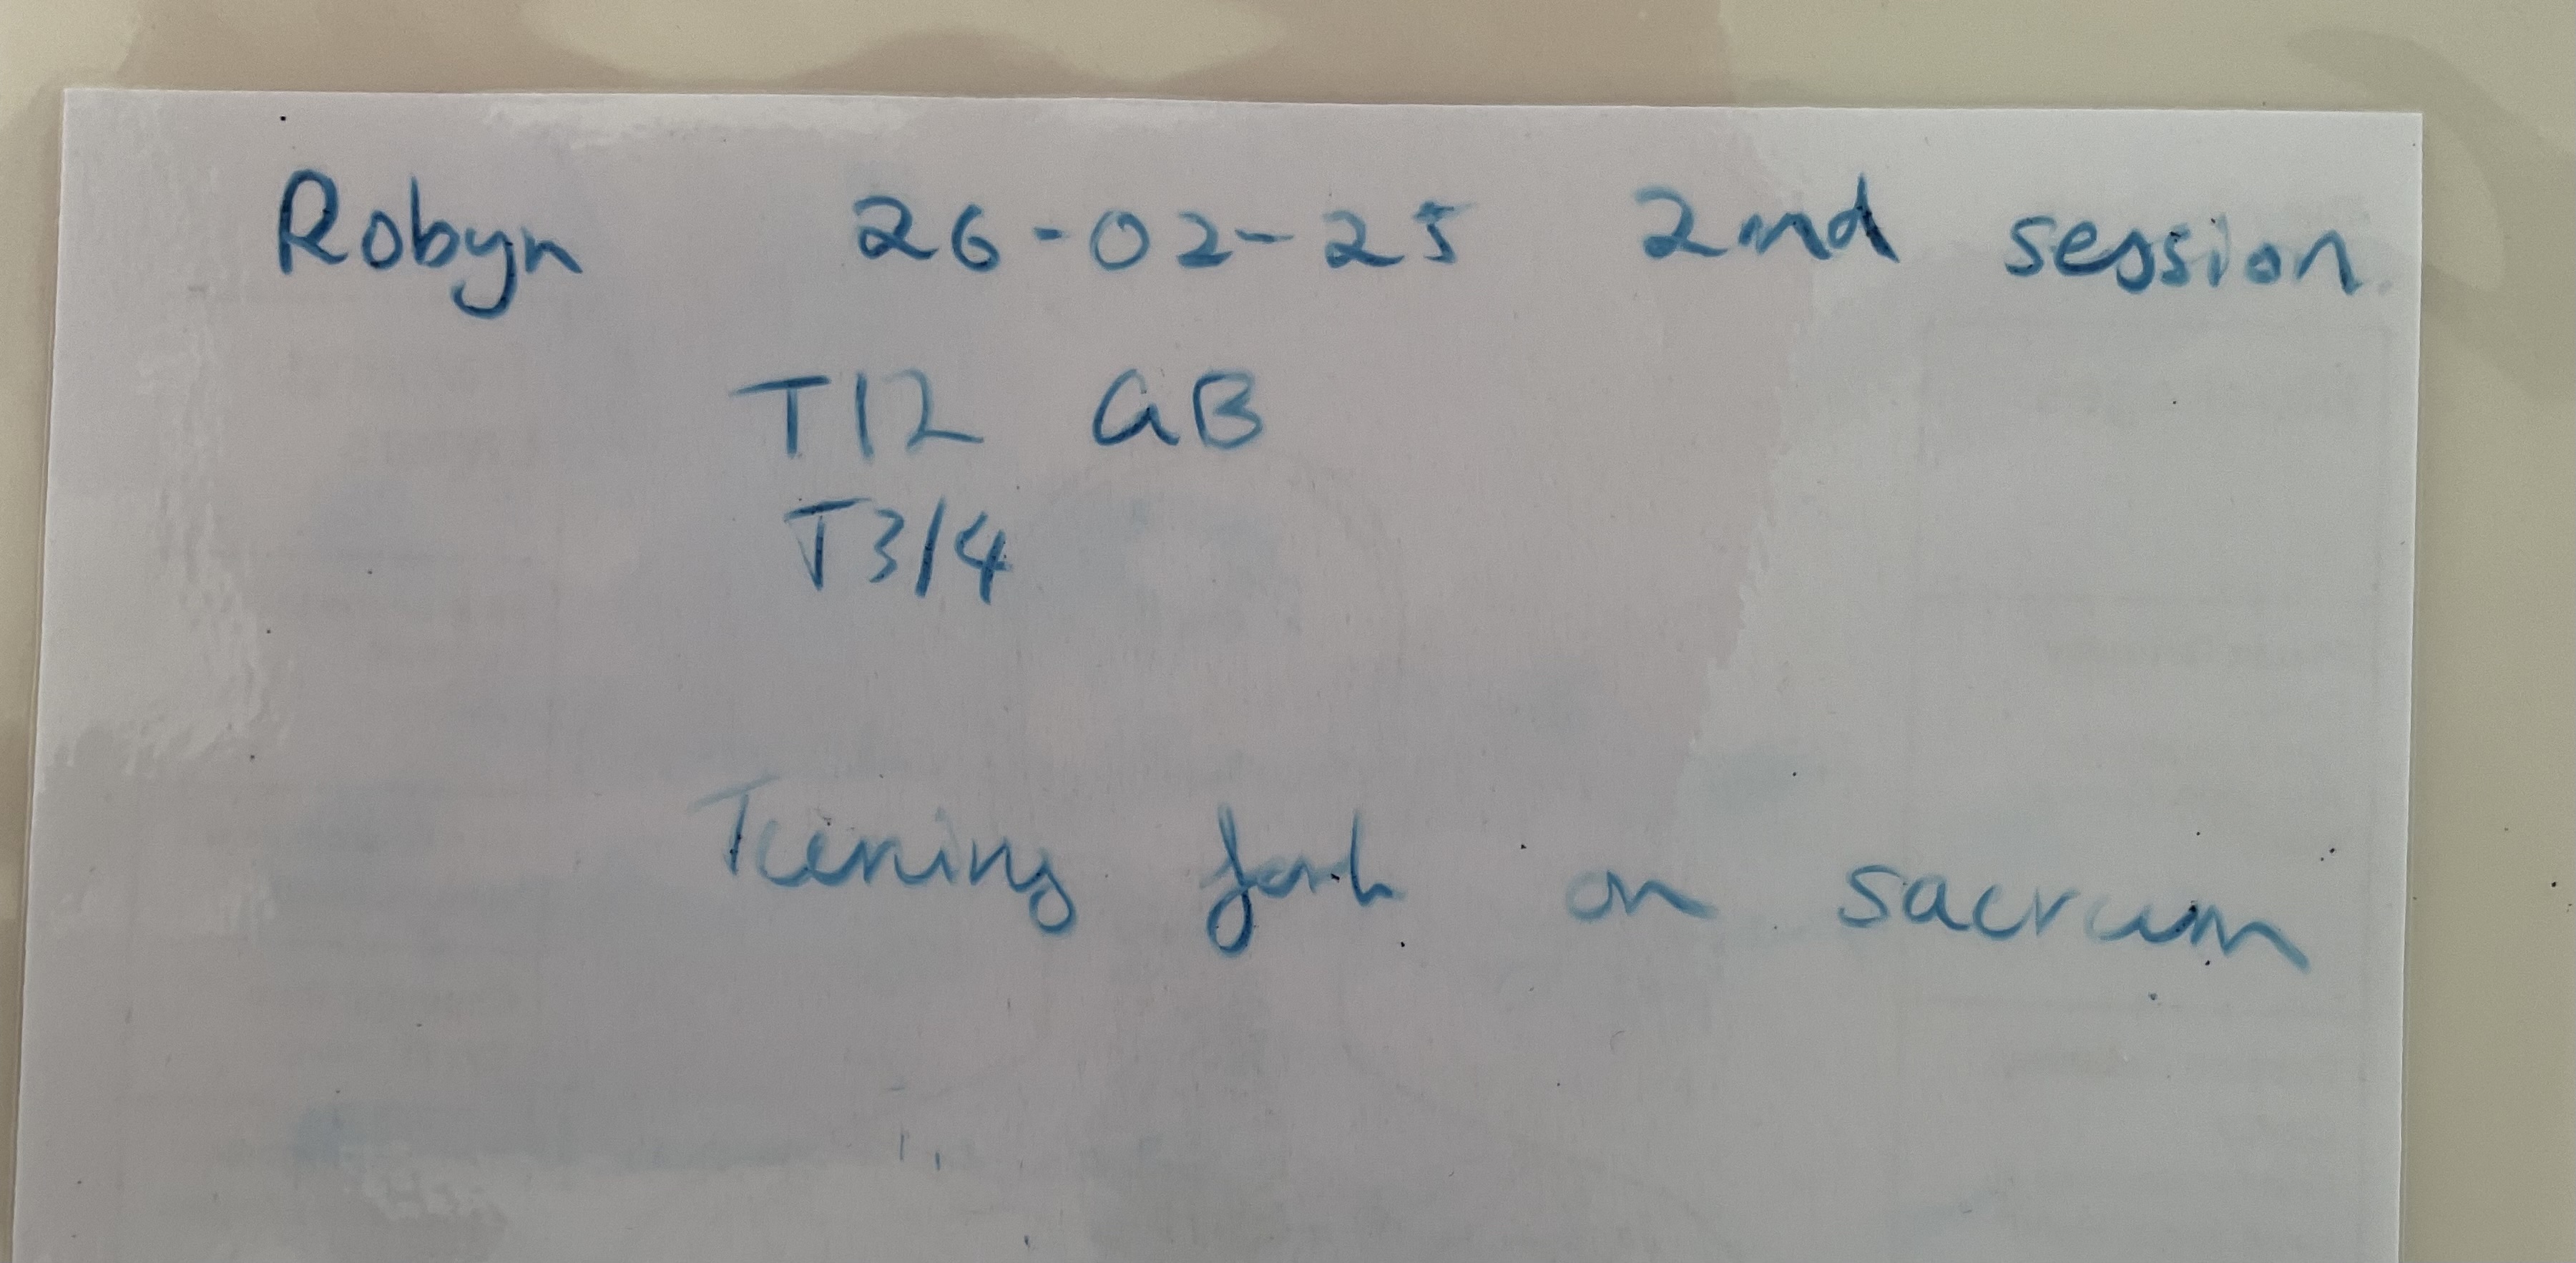 Robyn 26-02-25 2nd session
T12 GB
T3/4
Tuning fork on sacrum